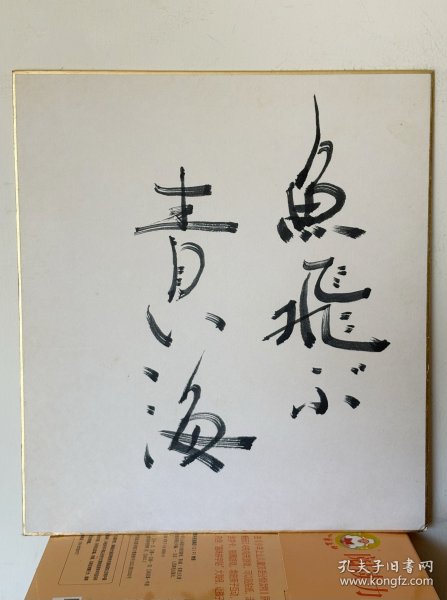 魚飛ぶ
青い海
孔夫子旧书网
www.kongfz.com